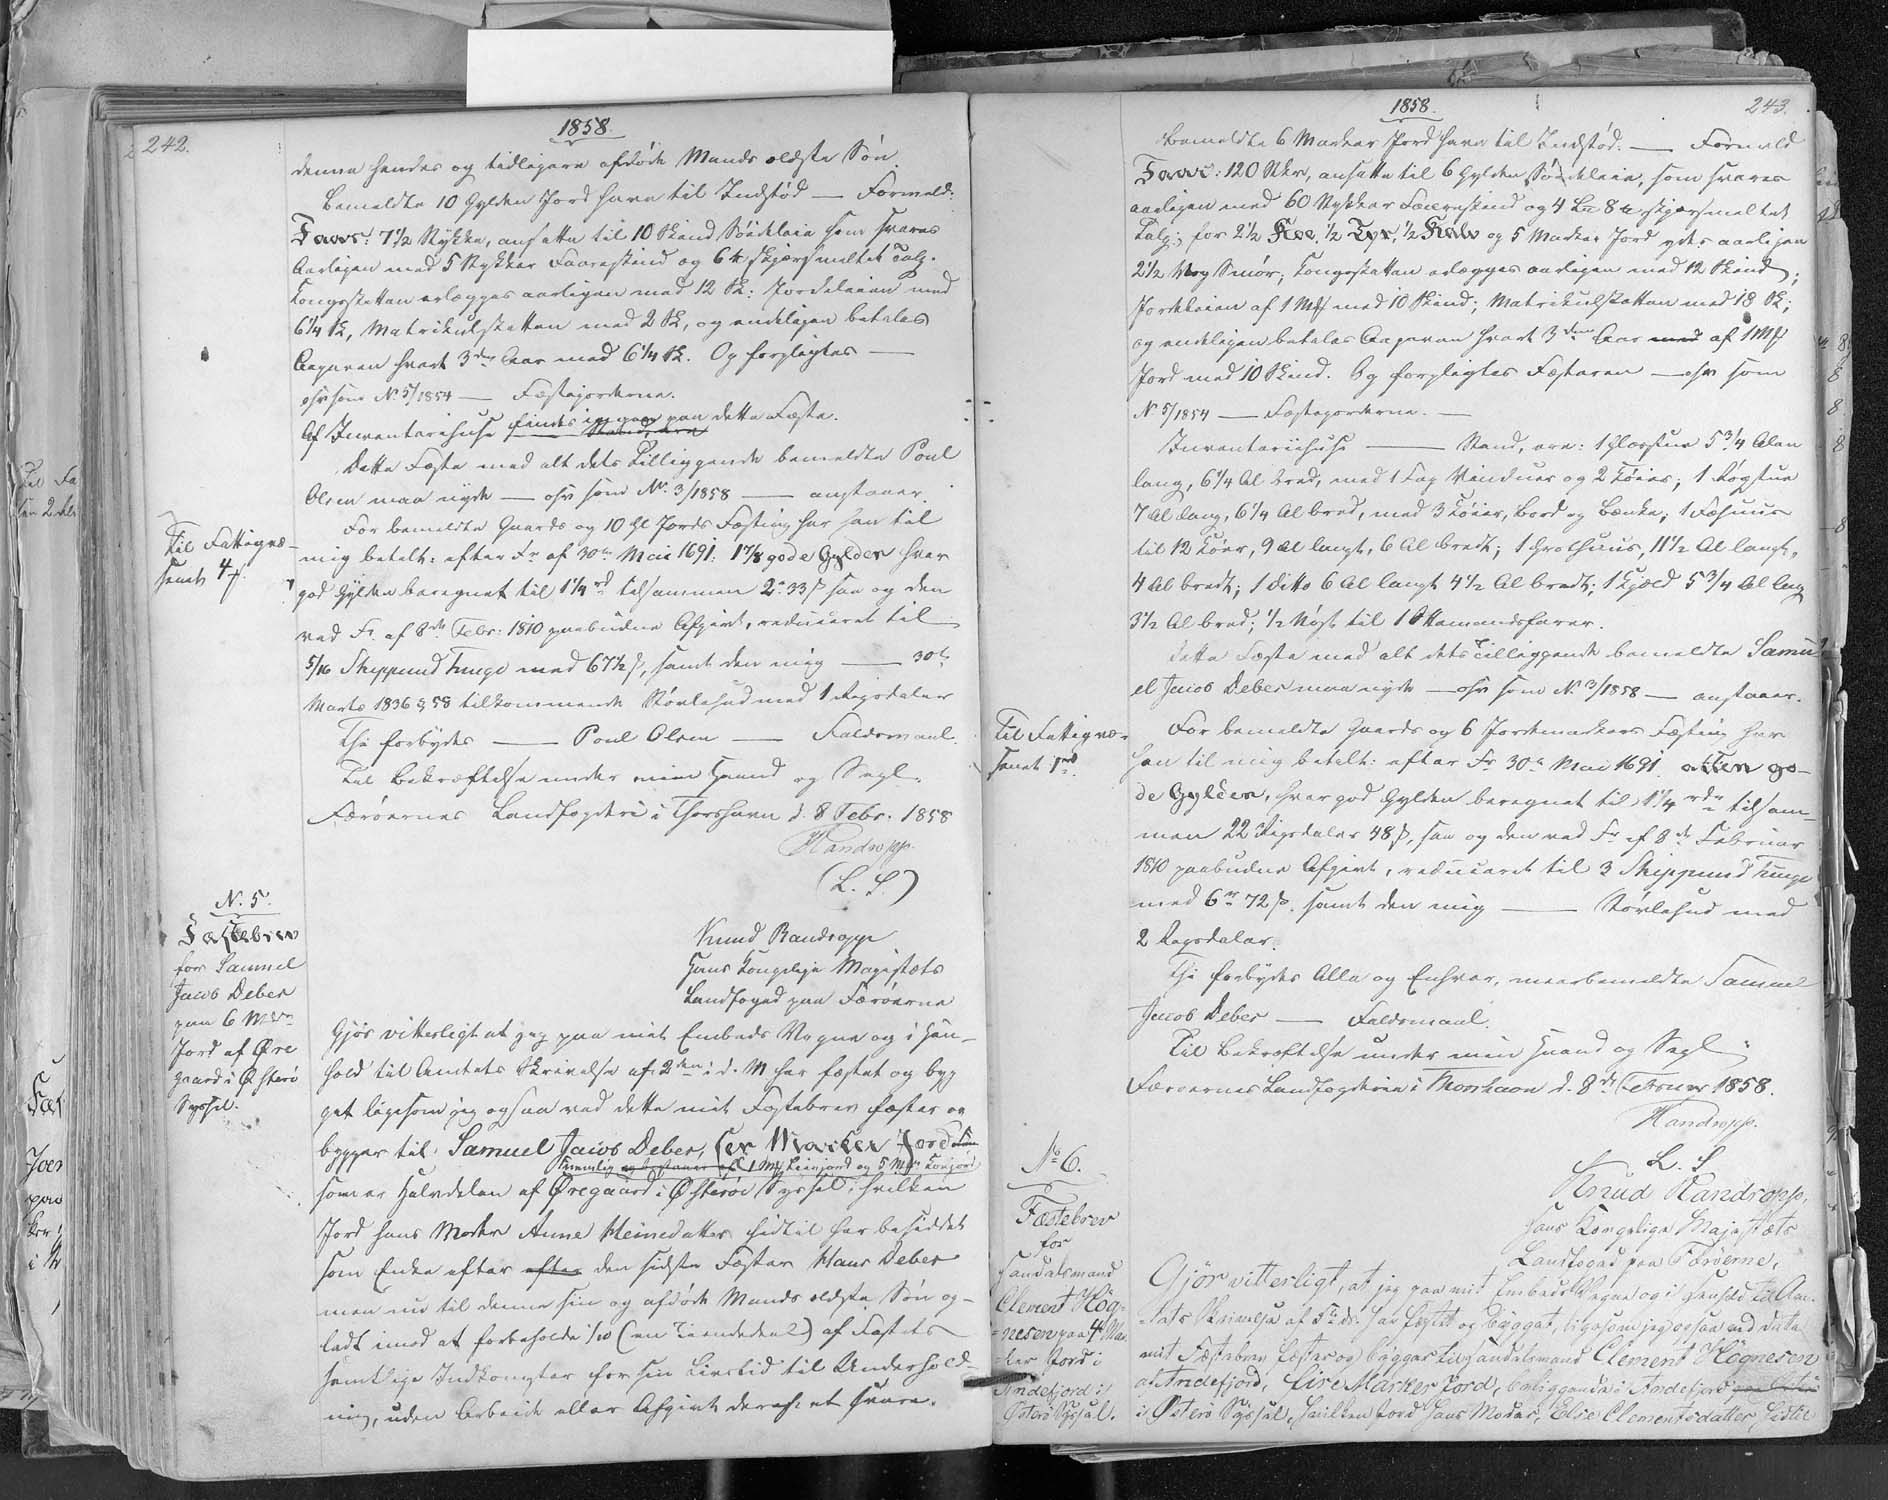 242.
1858.
denne hendes og tidligere afdøde Mands ældste Søn.
Bemeldte 10 Gylden Jord have til Indstød — Formeld:
Faar: 7½ Stykke, ansatte til 10 Skind Söideleie som svares
Aarligen med 5 Stykker Faareskind og 6 skjærsmeltet Talg.
Kongsskatten erlægges aarligen med 12 Sk: Jordeleien med
6¼ Sk, Matrikulskatten med 2 Sk, og endeligen betales
Aagaven hvert 3die Aar med 6¼ Sk. Og forpligtes —
osv som No 5/1854 — Fæstejorderne.
Af Inventarihuse findes ingen paa dette Fæste.
Dette Fæste med alt dets Tilliggende bemeldte Poul
Olsen maa nyde — osv som No. 3/1858 — anstaaer.
For bemeldte Gaards og 10 Gl Jords Fæsting har han til
mig betalt: efter Fr af 30te Mai 1691. 1 7/8 gode Gylden hver
god Gylden beregnet til 1¼ rd tilsammen 2 33 ß saa og den
ved Fr. af 8de Febr. 1810 paabudne Afgivt, reduceret til
5/16 Skippund Tunge med 67½ ß, samt den mig — 30te
Marts 1836 § 58 tilkommende Störlehud med 1 Rigsdaler
Thi forbydes — Poul Olsen — Faldsmaal.
Til Bekræftelse under min Haand og Segl.
Færøernes Landfogderi i Thorshavn d. 8 Febr. 1858
HRandropp.
(L. S.)
Til Fattigvæ-
senet 4 ß.
No. 5.
Fæstebrev
for Samuel
Jacob Debes
paa 6 Mkr
Jord af Øre
gaard i Østerö
Syssel.
Knud Randropp
Hans Kongelige Majestæts
Landfoged paa Færøerne
Gjør vitterligt at jeg paa mit Embeds Vegne og i Hen-
hold til Amtets Skrivelse af 2den i d. M har fæstet og byg
get ligesom jeg ogsaa ved dette mit Fæstebrev fæster og
bygger til Samuel Jacob Debes, Sex Marker Jord
som er Halvdelen af Øregaard i Østeröe Syssel, hvilken
Jord hans Moder Anne Heinesdatter hidtil har besiddet
som Enke efter efter den sidste Fæster Hans Debes
men nu til denne sin og afdøde Mands ældste Søn op-
ladt imod at forbeholde 1/10 (en Tiendedeel) af Fæstets
samtlige Indkomster for sin Livstid til Underhold-
ning, uden Arbeide eller Afgivt deraf at svare.
243.
1858.
Bemeldte 6 Marker Jord have til Indstød. — Formeld
Faar: 120 Stkr, ansatte til 6 Gylden Söideleie, som svares
aarligen med 60 Stykker Faareskind og 4 8 skjærsmeltet
Talg; for 2½ Koe, ½ Tyr, ½ Kalv og 5 Marker Jord ydes aarligen
2½ Vog Smør; Kongsskatten erlægges aarligen med 12 Skind;
Jordeleien af 1 Mk med 10 Skind; Matrikulskatten med 18 Sk;
og endeligen betales Aagaven hvert 3die Aar med af 1 Mk
Jord med 10 Skind. Og forpligtes Fæsteren — osv som
No 5/1854 — Fæstejorderne. —
Inventariihuse — Stand, ere: 1 Glasstue 5¾ Alen
lang, 6¼ Al bred, med 1 Fag Vinduer og 2 Köier; 1 Røgstue
7 Al lang, 6¼ Al bred, med 3 Köier, Bord og Bænke; 1 Fæhuus
til 12 Köer, 9 Al langt, 6 Al bredt; 1 Grothuus, 11½ Al langt,
4 Al bredt; 1 ditto 6 Al langt 4½ Al bredt; 1 Hjæld 5¾ Al lang
3½ Al bred; ½ Nöst til 1 Ottemandsfarer.
Dette Fæste med alt dets Tilliggende bemeldte Samu
el Jacob Debes maa nyde — osv som No 3/1858 — anstaaer.
For bemeldte Gaards og 6 Jordmarkers Fæsting har
han til mig betalt: efter Fr 30te Mai 1691. atten go-
de Gylden, hver god Gylden beregnet til 1¼ rd tilsam-
men 22 Rigsdaler 48 ß, saa og den ved Fr af 8de Februar
1810 paabudne Afgivt, reduceret til 3 Skippund Tunge
med 6 72 ß. samt den mig — Störlehud med
2 Rigsdaler.
Thi forbydes Alle og Enhver, meerbemeldte Samuel
Jacob Debes — Faldsmaal.
Til Bekræftelse under min Haand og Segl.
Færøernes Landfogderie i Thorshavn d. 8de Februar 1858.
HRandropp.
L. S.
Til Fattigvæ-
senet 1 rd.
No 6.
Fæstebrev
for
Sandalsmand
Clement Hög-
nesen paa 4 Mar-
ker Jord i
Andefjord i
Österö Syssel.
Knud Randropp,
Hans Kongelige Majestæts
Landfoged paa Færøerne,
Gjör vitterligt, at jeg paa mit Embeds Vegne og i Henhold til Am-
tets Skrivelse af 5te ds. har fæstet og bygget, ligesom jeg ogsaa ved dette
mit Fæstebrev fæster og bygger til Sandalsmand Clement Högnesen
af Andefjord, fire Marker Jord, beliggende i Andefjord
i Österö Syssel, hvilken Jord hans Moder, Else Clementsdatter, hidtil